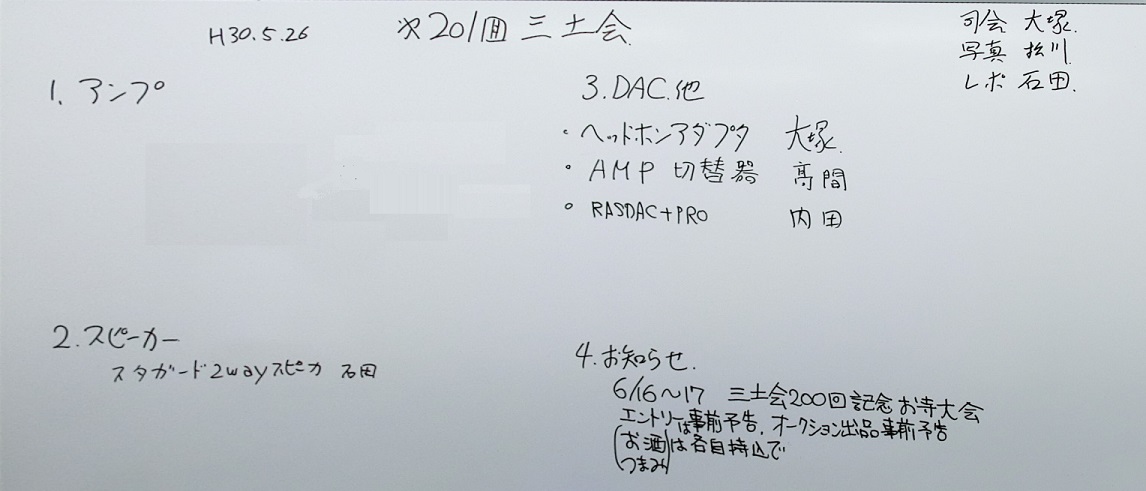 H30.5.26 第201回 三土会
司会 大塚.
写真 松川
レポ 石田.
1. アンプ
2. スピーカー
スタガード2wayスピーカ 石田
3. DAC.他
・ヘッドホンアダプタ 大塚.
・AMP 切替器 髙間
・RASDAC+PRO 内田
4. お知らせ.
6/16〜17 三土会200回記念お寺大会
エントリーは事前予告. オークション出品事前予告
(お酒
つまみ)は各自持込で